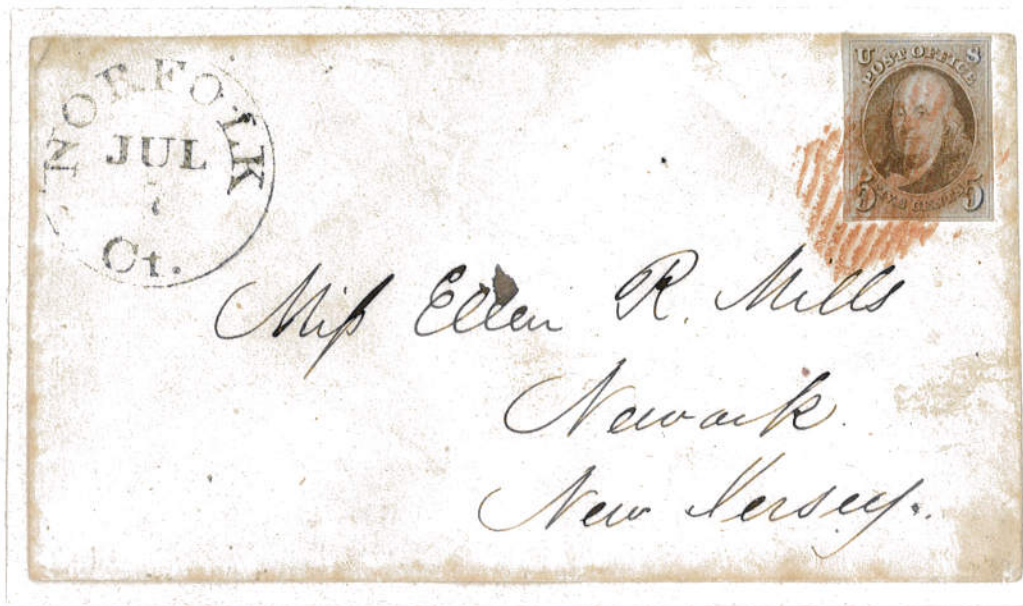 NORFOLK
JUL
7
Ct.
U S
POST OFFICE
5 FIVE CENTS 5
Miſs Ellen R. Mills
Newark.
New Jersey.